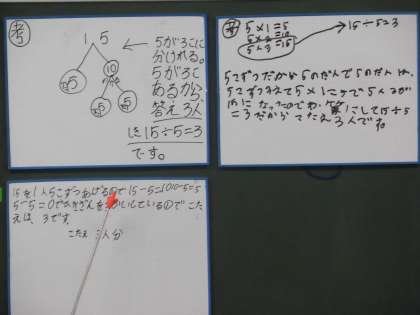 考
1 5
5 10
5 5
5が3こに
分けれる。
5が3こ
あるから、
答え3人
しき15÷5=3
です。
考
5×1=5
5×2=10
5×3=15
15÷5=3
5こずつだから5のだんで5のだんは、
15になったので
にして15÷5
=3だからこたえ3人です
15を1人5こずつあげるので15-5=10 10-5=5
5-5=0で
ひきざんを3かいしている
のでこた
えは、3です。
こたえ 3人分